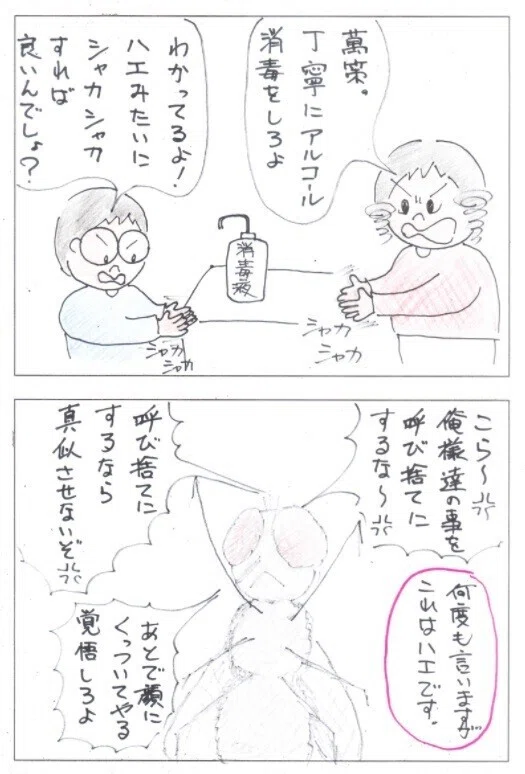 萬策。
丁寧にアルコール
消毒をしろよ
わかってるよ！
ハエみたいに
シャカシャカ
すれば
良いんでしょ？
消毒液
シャカ
シャカ
シャカ
シャカ
こら〜
俺様達の事を
呼び捨てに
するな〜
何度も言いますが…
これはハエです。
呼び捨てに
するなら
真似させないぞ
あとで顔に
くっついてやる
覚悟しろよ